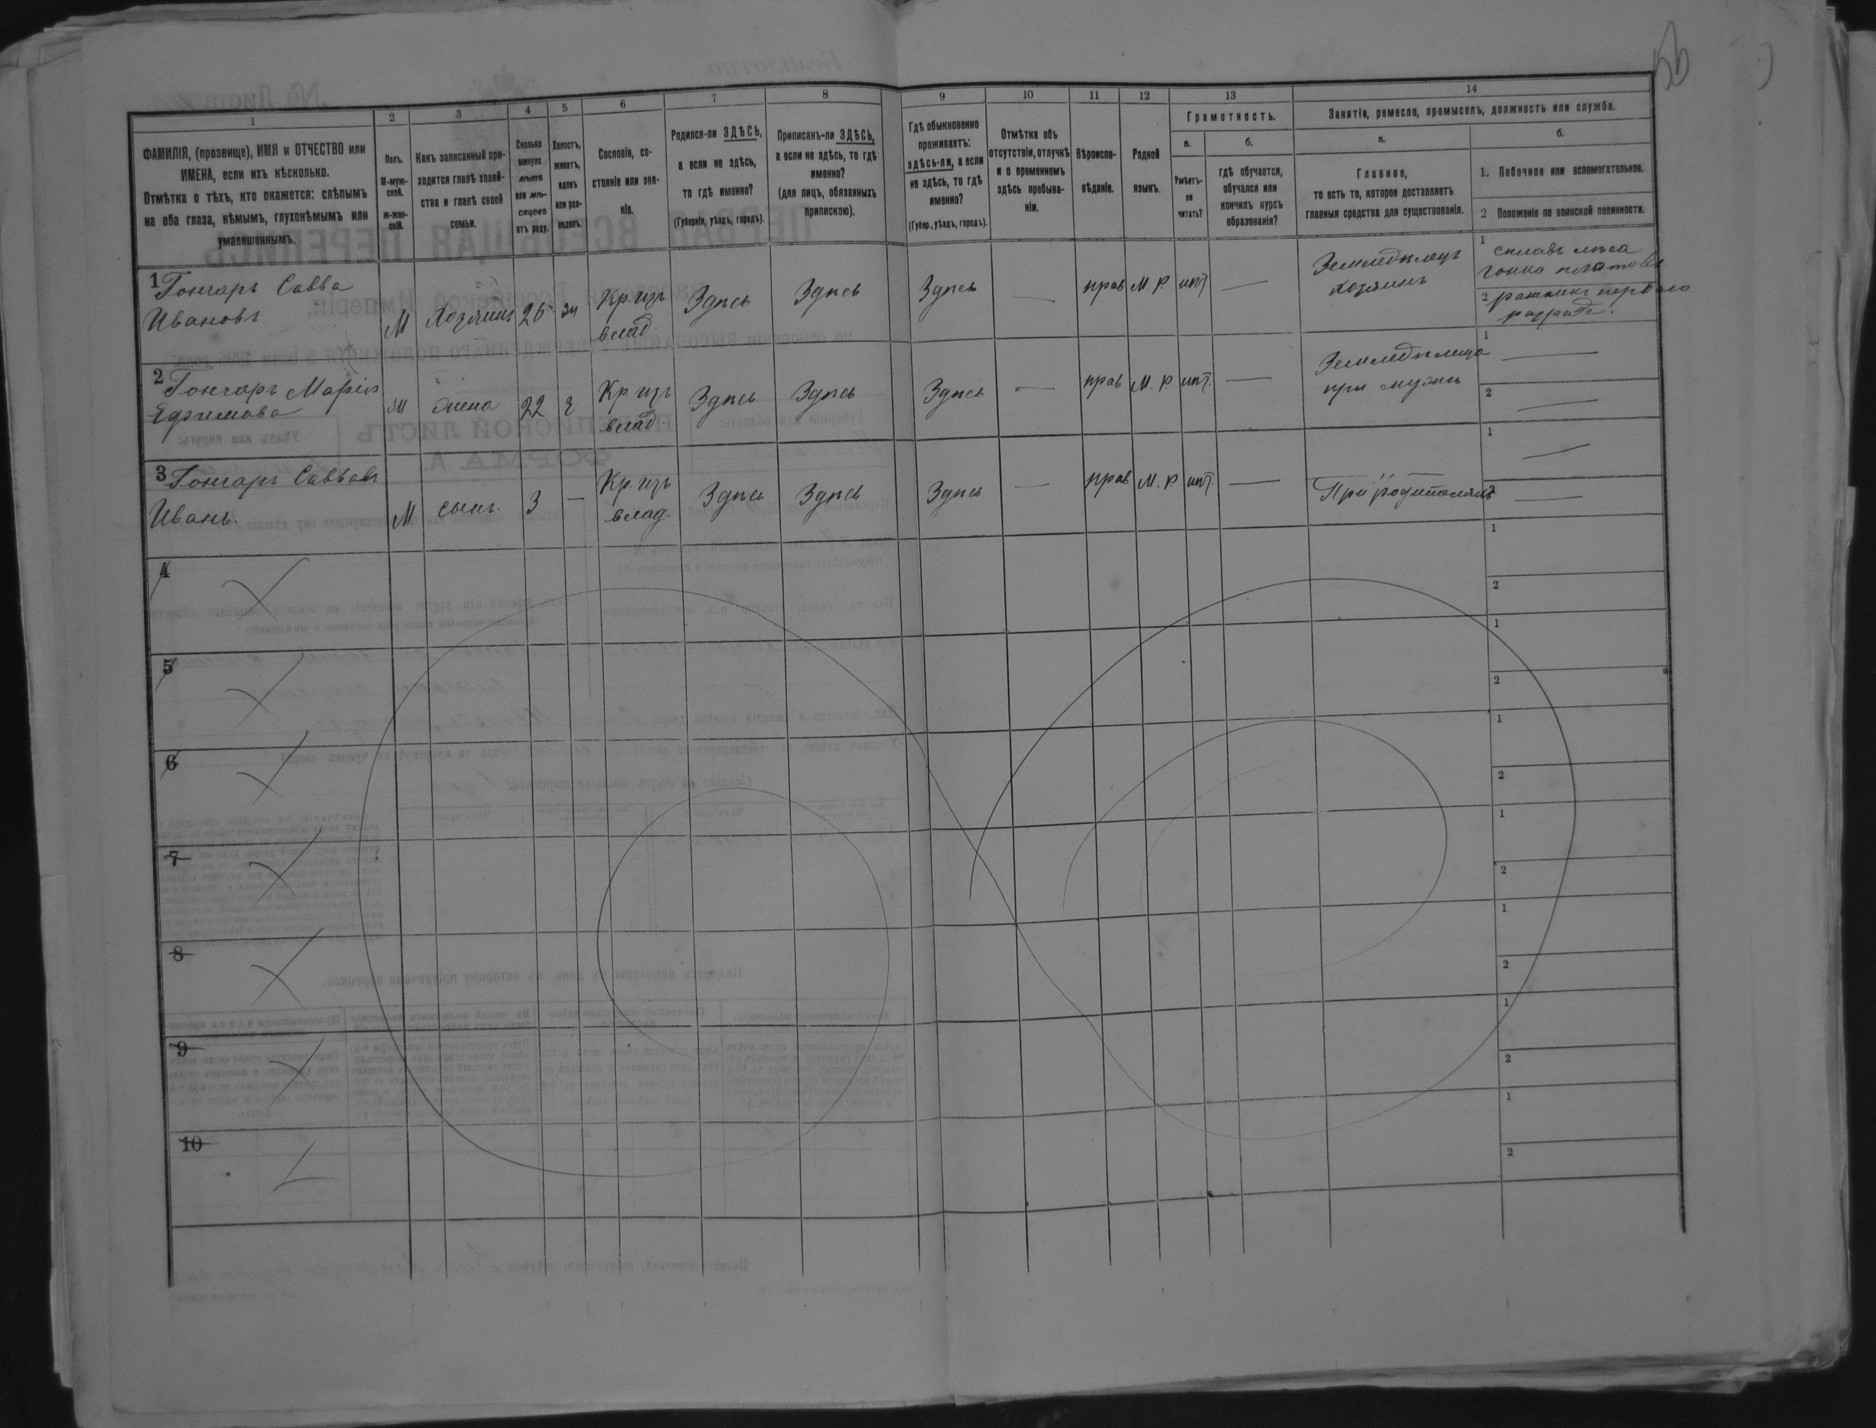 1 2 3 4 5 6 7 8 9 10 11 12 13 14
ФАМИЛІЯ, (прозвище), ИМЯ и ОТЧЕСТВО или
ИМЕНА, если ихъ нѣсколько.
Отмѣтка о тѣхъ, кто окажется: слѣпымъ
на оба глаза, нѣмымъ, глухонѣмымъ или
умалишеннымъ.
Полъ.
М-муж-
ской.
Ж-жен-
скій.
Какъ записанный при-
ходится главѣ хозяй-
ства и главѣ своей
семьи.
Сколько
минуло
лѣтъ
или мѣ-
сяцевъ
отъ роду.
Холостъ,
женатъ,
вдовъ
или раз-
веденъ.
Сословіе, со-
стояніе или зва-
ніе.
Родился-ли ЗДѢСЬ,
а если не здѣсь,
то гдѣ именно?
(Губернія, уѣздъ, городъ).
Приписанъ-ли ЗДѢСЬ,
а если не здѣсь, то гдѣ
именно?
(для лицъ, обязанныхъ
припискою).
Гдѣ обыкновенно
проживаетъ:
здѣсь-ли, а если
не здѣсь, то гдѣ
именно?
(Губер., уѣздъ, городъ).
Отмѣтка объ
отсутствіи, отлучкѣ
и о временномъ
здѣсь пребыва-
ніи.
Вѣроиспо-
вѣданіе.
Родной
языкъ.
Грамотность.
а.
Умѣетъ-
ли
читать?
б.
гдѣ обучается,
обучался или
кончилъ курсъ
образованія?
Занятіе, ремесло, промыселъ, должность или служба.
а.
Главное,
то есть то, которое доставляетъ
главныя средства для существованія.
б.
1. Побочное или вспомогательное.
2 Положеніе по воинской повинности.
1 Гончаръ Савва
Ивановъ
М Хозяинъ 26 ж
Кр. изъ
влад
Здѣсь Здѣсь Здѣсь — прав М. Р. нѣт —
Земледѣлецъ
хозяинъ
1 сплавъ лѣса
гонка плотовъ
2 ратникъ перваго
разряда.
2 Гончаръ Марія
Ефимова
Ж жена 22 з
Кр. изъ
влад
Здѣсь Здѣсь Здѣсь — прав М. Р. нѣт. —
Земледѣлица
при мужѣ
1 —
2 —
3 Гончаръ Саввовъ
Иванъ.
М. сынъ. 3 —
Кр. изъ
влад.
Здѣсь Здѣсь Здѣсь — прав М. Р. нѣт. —
При родителяхъ
1 —
2 —
4 1
2
5 1
2
6 1
2
7 1
2
8 1
2
9 1
2
10 1
2